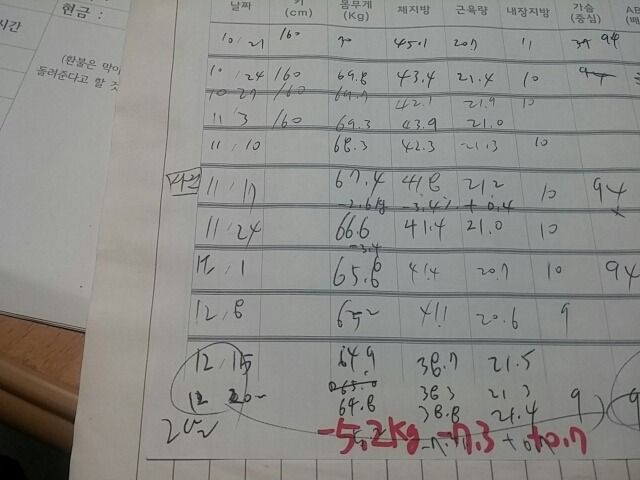 현금 :
시간
(환불은 막이
돌려준다고 할 것
날짜 키 (cm) 몸무게 (Kg) 체지방 근육량 내장지방 가슴 (중심)
10/21 160 70 45.1 20.7 11 94
10/24 160 69.8 43.4 21.4 10
10 27 160 69.7 42.1 21.9 10
11/3 160 69.3 43.9 21.0
11/10 68.3 42.3 21.3 10
11/17 67.4 41.8 21.2 10 94
-2.6kg -3.4% +0.4
11/24 66.6 41.4 21.0 10
-3.4
12/1 65.8 41.4 20.7 10 94
12.8 65.2 41.1 20.6 9
12.15 64.9 38.7 21.5
38.3 21.3
64.8 38.8 21.4 9
-5.2kg -7.3 +0.7